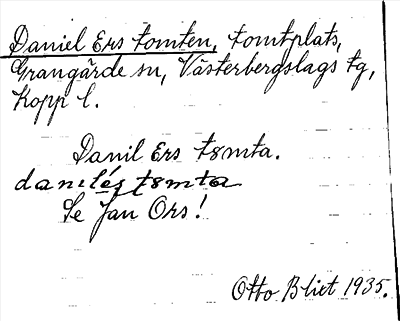 Daniel Ers tomten, tomtplats,
Grangärde sn, Västerbergslags tg,
Kopp l.
Danil Ers tomta.
danɩlés tomta
Se Jan Ors!
Otto Blixt 1935.